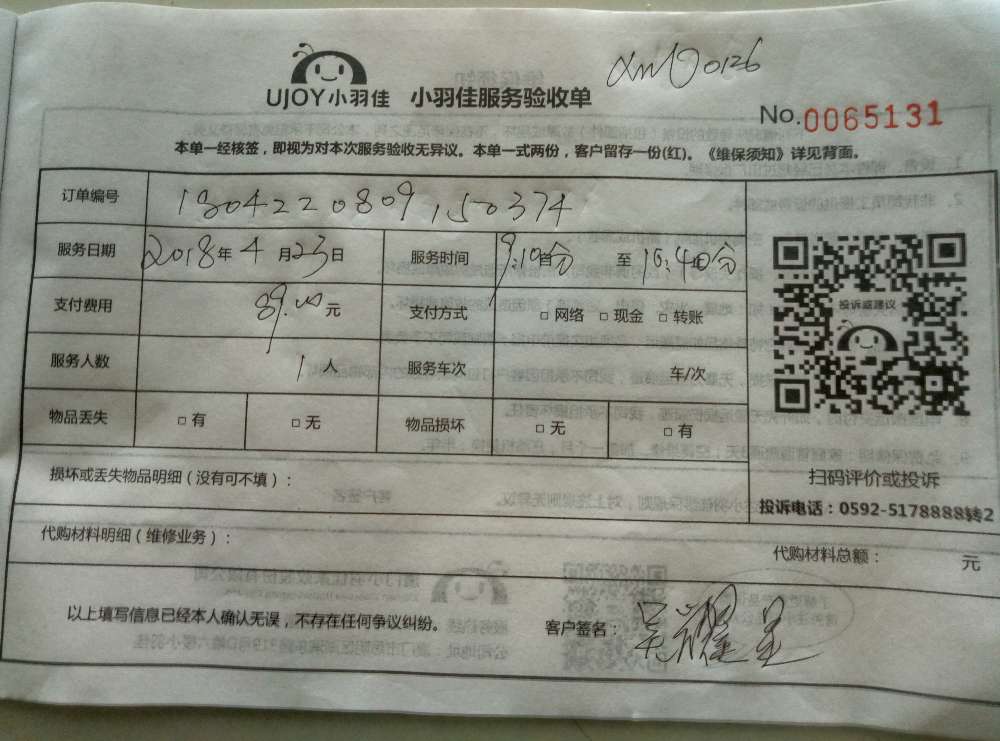 UJOY小羽佳 小羽佳服务验收单
No.0065131
本单一经核签，即视为对本次服务验收无异议。本单一式两份，客户留存一份(红)。《维保须知》详见背面。
订单编号 1804220809150374
服务日期 2018年4月23日 服务时间 9:10分 至 10:40分
支付费用 89.00元 支付方式 □网络 □现金 □转账
投诉或建议
服务人数 1人 服务车次 车/次
物品丢失 □有 □无 物品损坏 □无 □有
损坏或丢失物品明细(没有可不填)：
扫码评价或投诉
投诉电话：0592-5178888转2
代购材料明细(维修业务)：
代购材料总额： 元
以上填写信息已经本人确认无误，不存在任何争议纠纷。
客户签名：